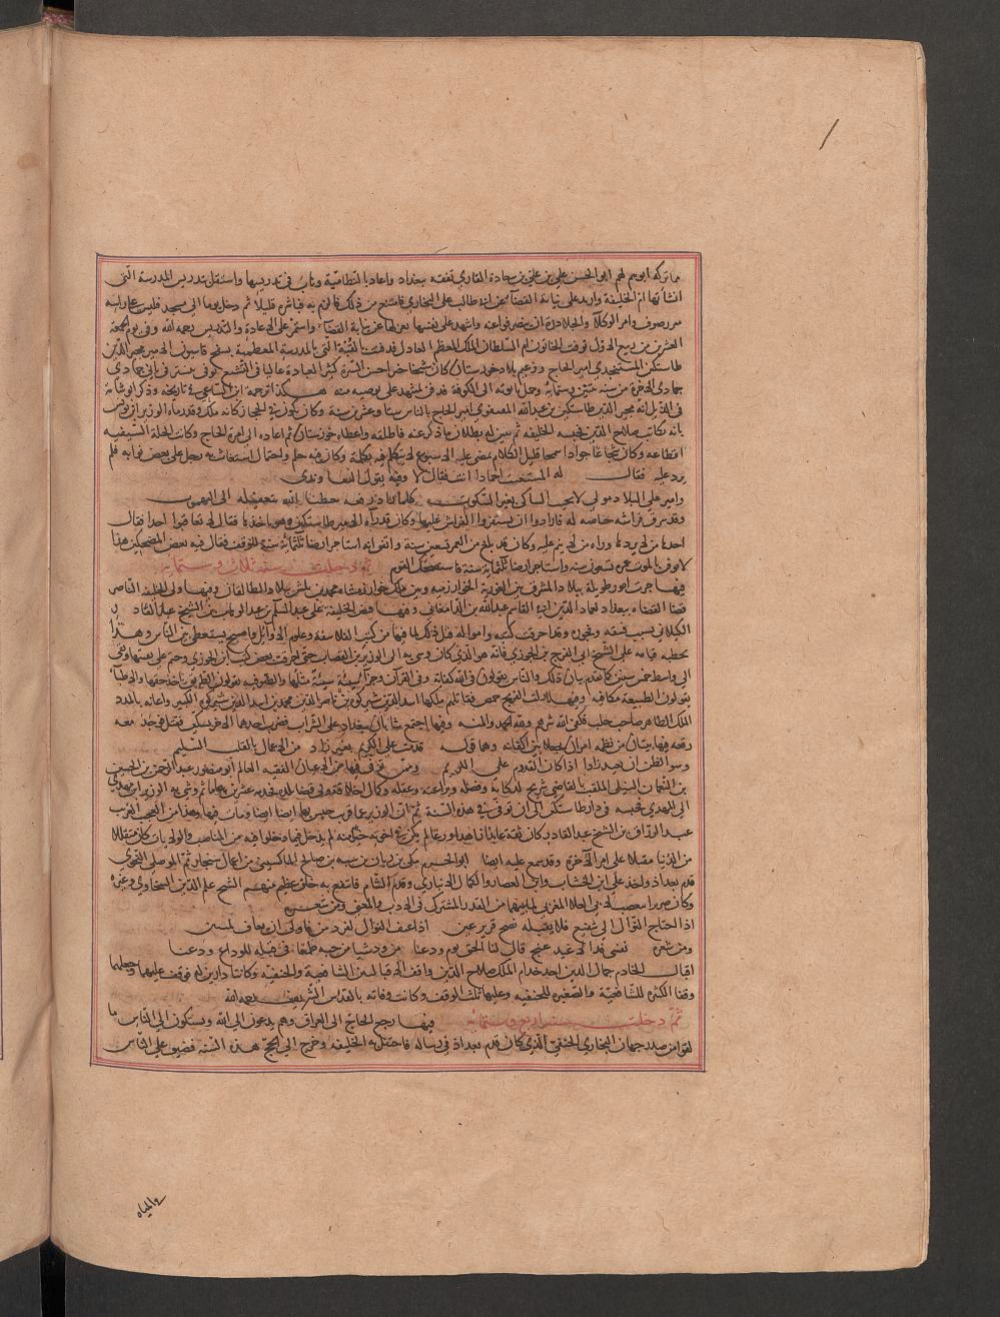 ما تركه ابوهم لهم ابو الحسن علي بن علي بن سعادة الفارقي تفقه ببغداد واعاد بالنظامية وناب في تدريسها واستقل بتدريس المدرسة التي
انشاتها ام الخليفة واريد على نيابة القضاء عن ابي طالب علي البخاري فامتنع من ذلك فالزم به فباشره قليلا ثم دخل يوما الى مسجد فلبس على راسه
مئزر صوف وامر الوكلا والجلاوزة ان ينصرفوا عنه واشهد على نفسها بعزلها عن نيابة القضاء واستمر على الاعادة والتدريس رحمه الله وفي يوم الجمعة
العشرين من ربيع الاول توفيت الخاتون ام السلطان الملك المعظم العادل فدفنت بالقبة التي بالمدرسة المعظمية بسفح قاسيون الامير مجير الدين
طاستكين المستنجدي امير الحاج وزعيم بلاد خوزستان كان شيخا خيرا حسن السيرة كثير العبادة غاليا في التشيع توفي بتستر في ثاني جمادى
جمادى الاخرة من سنه ثنتين وستمائة وحمل تابوته الى الكوفة فدفن بمشهد علي بوصيه منه هكذا ترجمه ابن الساعي في تاريخه وذكر ابو شامة
في الذيل انه مجير الدين طاستكين بن عبد الله المقتفوي امير الحاج حج بالناس ستا وعشرين سنة وكان يكون في الحجاز كانه ملك وقد رماه الوزير ابن يونس
بانه يكاتب صلاح الدين فحبسه الخليفة ثم تبين له بطلان ما ذكر عنه فاطلقه واعطاه خوزستان ثم اعاده الى امرة الحاج وكانت الحلة السيفية
اقطاعه وكان شجاعا جوادا سمحا قليل الكلام يمضي عليه الاسبوع لا يتكلم فيه بكلمة وكان فيه حلم واحتمال استغاث به رجل على بعض نوابه فلم
يرد عليه فقال له المستغيث احمار انت فقال لا وفيه يقول ابن التعاويذي
وامير على البلاد مولى لا يجيب الشاكي بغير السكوت كلما زاد رفعة حطنا الله بتغفيله الى البهموت
وقد سرق فراشه حياصه له فارادوا ان يستقروا الفراش عليها وكان قد راه الامير طاستكين وهو ياخذها فقال لا تعاقبوا احدا فقال
اخذها من لا يردها وراه من لا ينم عليه وكان قد بلغ من العمر تسعين سنة واتفق انه استاجر ارضا ثلثمائة سنة للوقف فقال فيه بعض المضحكين هذا
لا يوقن بالموت عمره تسعون سنه واستاجر ارضا ثلثمائة سنة فاستضحك القوم ثم دخلت سنه ثلاث وستمايه
فيها جرت امور طويلة ببلاد المشرق بين الغورية والخوارزمية وبين ملك خوارزمشاه محمد بن تكش ببلاد والطالقان وفيها ولى الخليفة الناصر
قضا القضاه ببغداد لعماد الدين ابي القاسم عبد الله بن الدامغاني وفيها قبض الخليفة على عبد السلم بن عبد الوهاب بن الشيخ عبد القادر
الكيلاني بسبب فسقه وفجوره وقد احرقت كتبه وامواله قبل ذلك لما فيها من كتب الفلاسفة وعلوم الاوائل واصبح يستعطي بين الناس وهذا
بخطيئة قيامه على الشيخ ابي الفرج بن الجوزي فانه هو الذي كان وشى به الى الوزير ابن القصاب حتى احرقت بعض كتب ابن الجوزي وختم على بقيتها ونفي
الى واسط خمس سنين كما تقدم بيان ذلك والناس يقولون في الله كفاية وفي القران وجزاء سيئة سيئة مثلها والصوفية يقولون الطريق ياخذ حقها والاطباء
يقولون الطبيعة مكافيه وفيها نازلت الفرنج حمص فقاتلهم ملكها اسد الدين شيركوه بن ناصر الدين محمد بن اسد الدين شيركوه الكبير واعانه بالمدد
الملك الظاهر صاحب حلب فكفى الله شرهم ولله الحمد والمنه وفيها اجتمع شابان ببغداد على الشراب فضرب احدهما الاخر بسكين فقتله فوجد معه
رقعة فيها بيتان من نظمه امران يجعلا بين اكفانه وهما قوله قدمت على الكريم بغير زاد من الاعمال بالقلب السليم
وسو الظن ان يعتد زادا اذا كان القدوم على الكريم وممن توفي فيها من الاعيان الفقيه العالم ابو منصور عبد الرحمن بن الحسين
بن النعمان النيلي الملقب بالقاضي شريح لذكائه وفضله وبراعته وعقله وكمال اخلاقه ولي قضا بلده ثم قدم بغداد ثم وشى به الوزير ابن مهدي
الى المهدي فحبسه في دار طاستكين الى ان توفي في هذه السنة ثم ان الوزير عما قريب حبس بها ايضا ايضا ومات فيها وهذا من العجب الغريب
عبد الرزاق بن الشيخ عبد القادر كان ثقة عابدا زاهدا ورعا لم يكن في اخوته خير منه لم يدخل فيما دخلوا فيه من المناصب والولايات كان متقللا
من الدنيا مقبلا على امر الاخرة وقد سمع عليه ايضا ابو الحسين مكي بن ريان بن شبه بن صالح الماكسيني من اعمال سنجار ثم الموصلي النحوي
قدم بغداد واخذ على ابن الخشاب وابن العصار والكمال الانباري وقدم الشام فانتفع به خلق عظيم منهم الشيخ علم الدين السخاوي وغيره
وكان ضريرا يتعصب لابي العلا المعري لما بينهما من القدر المشترك في الادب والعمى ومن شعره
اذا احتاج النوال الى شفيع فلا تقبله تصبح قرير عين اذا عيف النوال لفرد من فاولى ان يعاف لمنتين
ومن شعره نفسي فدا لاغيد غنج قال لنا الحق يوم ودعنا من ود شيا من حبه طمعا في قبله للوداع ودعنا
اقبال الخادم جمال الدين احد خدام الملك صلاح الدين واقف الاقباليتين الشافعية والحنفيه وكانتا دارين له فوقفهما عليهما وجعلهما
وقفا الكبرى للشافعية والصغيره للحنفيه وعليها ثلث الوقف وكانت وفاته بالقدس الشريف رحمه الله
ثم دخلت سنه اربع وستمايه فيها رجع الحاج الى العراق وهم يدعون الى الله ويشكون الى الناس ما
لقوا من صدر جهان البخاري الحنفي الذي كان قدم بغداد في رسالة فاحتفل به الخليفه وخرج الى الحج هذه السنه فضيق على الناس
والمياه